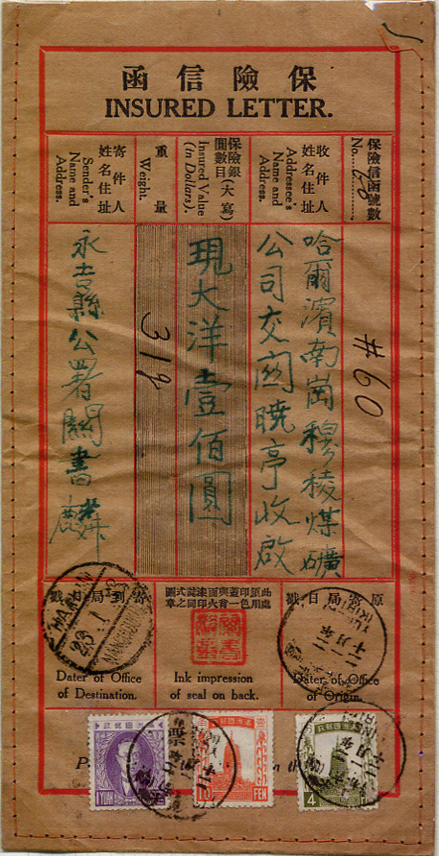 保險信函
INSURED LETTER.
保險信函號數
No. 60
收件人
姓名住址
Addressee's
Name and
Address.
保險銀(大寫)
圓數目
Insured Value
(in Dollars).
重量
Weight.
寄件人
姓名住址
Sender's
Name and
Address.
#60
哈爾濱南崗穆稜煤礦
公司交關曉亭收啟
現大洋壹佰圓
312
永吉縣公署關書麟
原寄局日戳
寄到局日戳
Date of Office
of Origin.
Ink impression
of seal on back.
Date of Office
of Destination.
HARBIN
1 YUAN
10 FEN
4